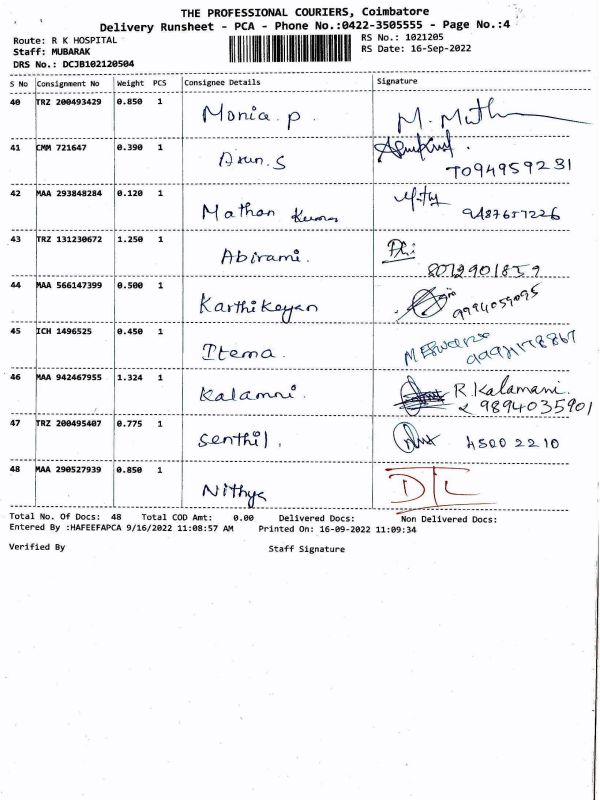 THE PROFESSIONAL COURIERS, Coimbatore
Delivery Runsheet - PCA - Phone No.:0422-3505555 - Page No.:4
Route: R K HOSPITAL RS No.: 1021205
Staff: MUBARAK RS Date: 16-Sep-2022
DRS No.: DCJB102120504
S No Consignment No Weight PCS Consignee Details Signature
40 TRZ 200493429 0.850 1 Monia. p. M. Muth
41 CMM 721647 0.390 1 Arun. S
7094959231
42 MAA 293848284 0.120 1 Mathan Kumar 9487657226
43 TRZ 131230672 1.250 1 Abirami.
8012901859
44 MAA 566147399 0.500 1 Karthikeyan 9994059095
45 ICH 1496525 0.450 1 Itema.
46 MAA 942467955 1.324 1 Kalamni. R. Kalamani.
9894035901
47 TRZ 200495407 0.775 1 Senthil. 4500 2210
48 MAA 290527939 0.850 1 Nithya D/L
Total No. Of Docs: 48 Total COD Amt: 0.00 Delivered Docs: Non Delivered Docs:
Entered By :HAFEEFAPCA 9/16/2022 11:08:57 AM Printed On: 16-09-2022 11:09:34
Verified By Staff Signature